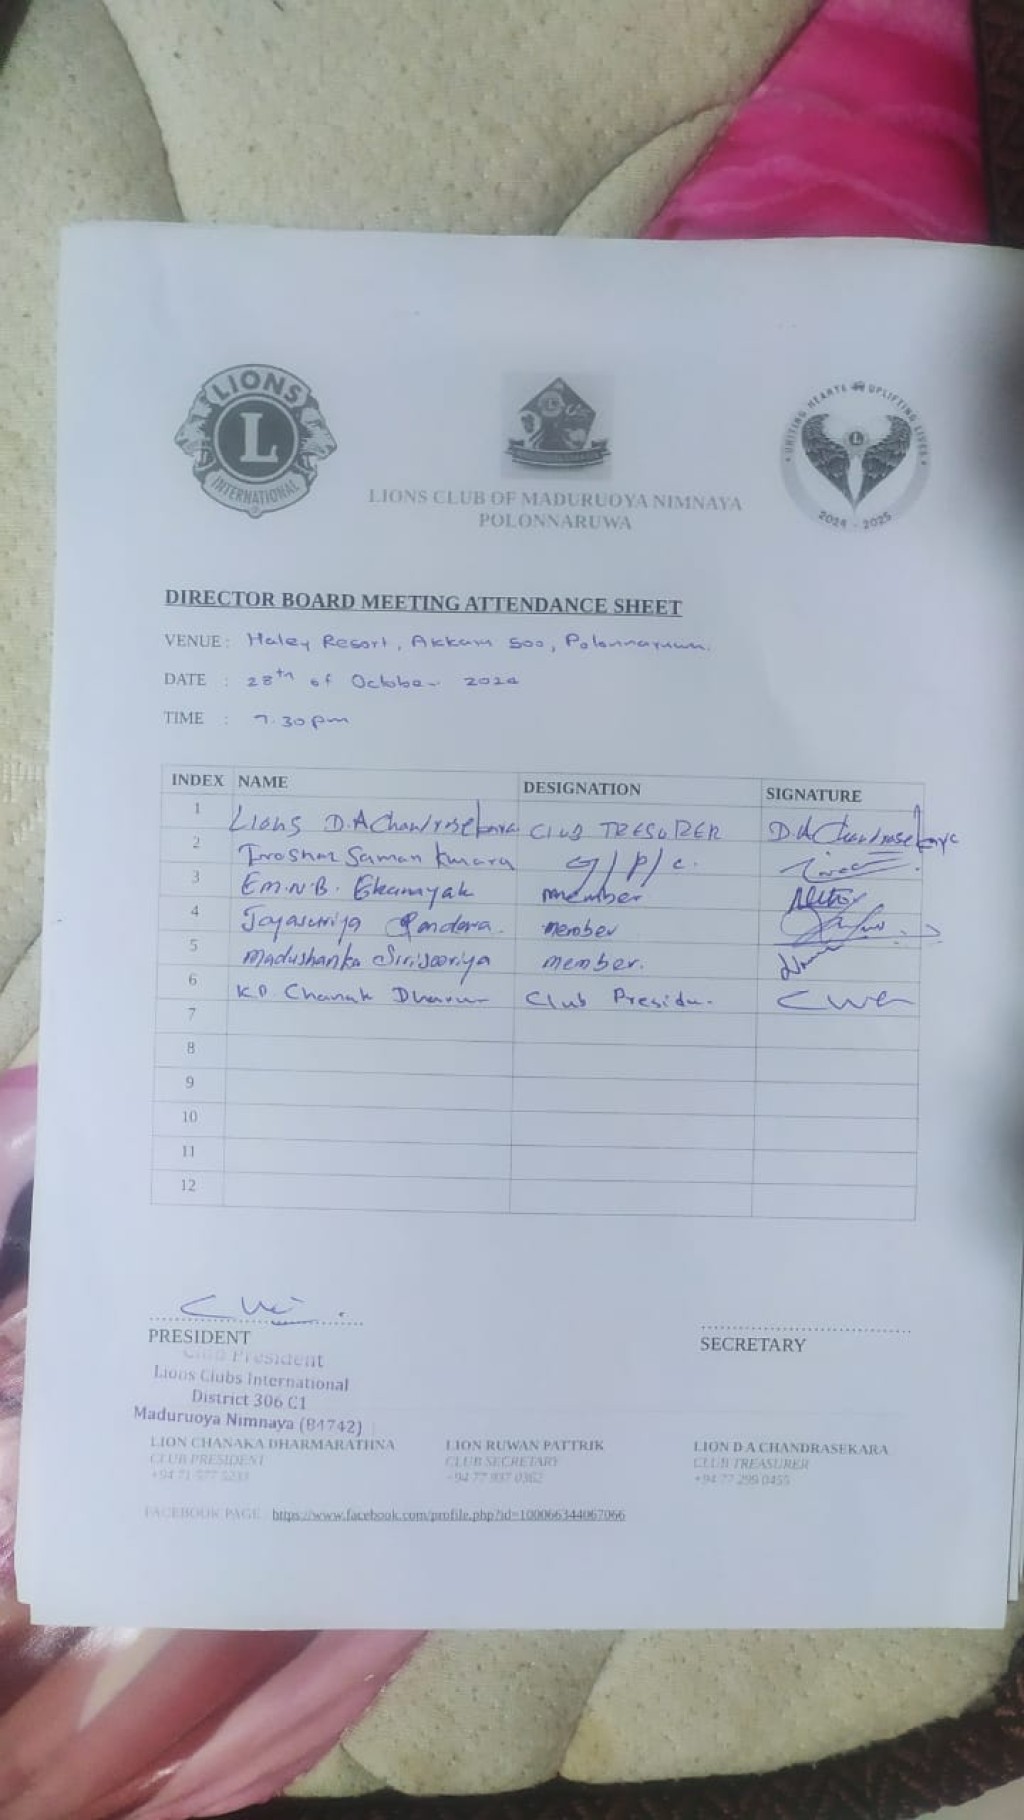 LIONS
L
INTERNATIONAL
LIONS CLUB OF MADURUOYA NIMNAYA
POLONNARUWA
UNITING HEARTS UPLIFTING LIVES
2024 - 2025
DIRECTOR BOARD MEETING ATTENDANCE SHEET
VENUE : Haley Resort, Akkara 500, Polonnaruwa.
DATE : 28th of October 2024
TIME : 7.30pm
INDEX NAME DESIGNATION SIGNATURE
1 Lions D.A Chandrasekara CLUB TRESURER D.A Chandrasekara
2 Saman Kumara
3 E.M.N.B. Ekanayak member
4 Jayasuriya Bandara. member
5 Madushanka Sirisooriya member.
6 K.D. Chanak Club
7
8
9
10
11
12
PRESIDENT
SECRETARY
Club President
Lions Clubs International
District 306 C1
Maduruoya Nimnaya (84742)
LION CHANAKA DHARMARATHNA LION RUWAN PATTRIK LION D A CHANDRASEKARA
CLUB PRESIDENT CLUB SECRETARY CLUB TREASURER
+94 77 299 0455
FACEBOOK PAGE https://www.facebook.com/profile.php?id=100066344067066